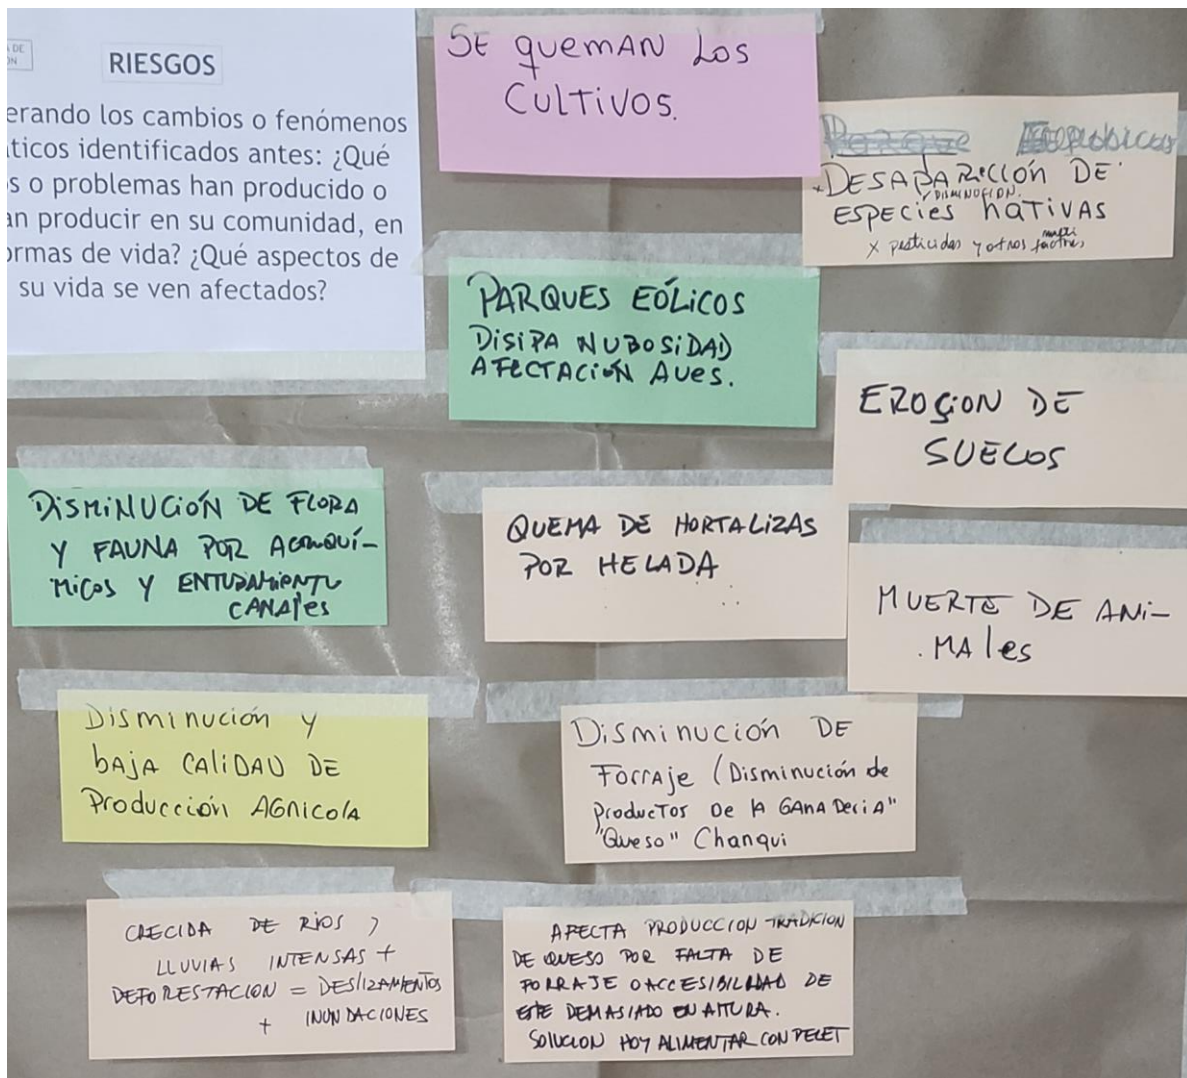 RIESGOS
erando los cambios o fenómenos
ticos identificados antes: ¿Qué
s o problemas han producido o
an producir en su comunidad, en
ormas de vida? ¿Qué aspectos de
su vida se ven afectados?
SE QUEMAN LOS
CULTIVOS.
DESAPARICCIÓN DE
Y DISMINUCION.
ESPECIES NATIVAS
x pesticidas y otros factores
PARQUES EÓLICOS
DISIPA NUBOSIDAD
AFECTACIÓN AVES.
EROSION DE
SUELOS
DISMINUCIÓN DE FLORA
Y FAUNA POR AGROQUÍ-
MICOS Y ENTUBAMIENTO
CANALES
QUEMA DE HORTALIZAS
POR HELADA
MUERTE DE ANI-
MALES
Disminución y
baja CALIDAD DE
Producción AGRICOLA
Disminución DE
Forraje (Disminución de
Productos De la GANADERIA"
"Queso" Chanqui
CRECIDA DE RIOS )
LLUVIAS INTENSAS +
DEFORESTACION = DESLIZAMIENTOS
+ INUNDACIONES
AFECTA PRODUCCION TRADICION
DE QUESO POR FALTA DE
FORRAJE O ACCESIBILIDAD DE
ESTE DEMASIADO EN ALTURA.
SOLUCION HOY ALIMENTAR CON PELET